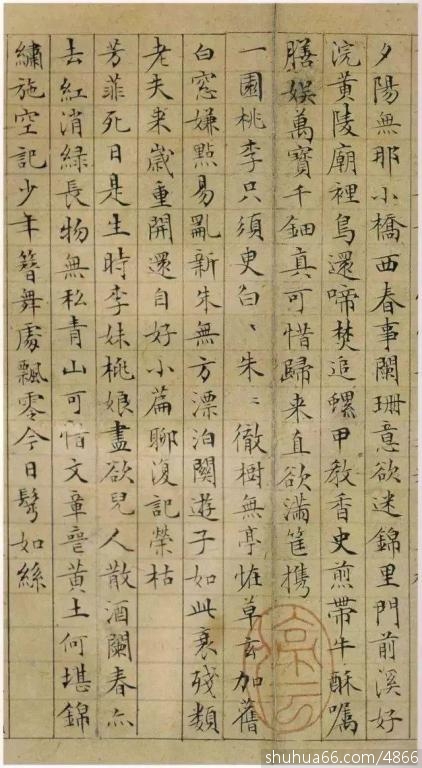 夕陽無那小橋西春事闌珊意欲迷錦里門前溪好
浣黄陵廟裡鳥還啼焚追螺甲教香史煎帶牛酥囑
膳娱萬寶千鈿真可惜歸来直欲滿筐携
一園桃李只須臾白〻朱〻徹樹無亭怪草玄加舊
白窓嫌點易亂新朱無方漂泊關遊子如此衰殘類
老夫来歲重開還自好小篇聊復記榮枯
芳菲死日是生時李妹桃娘盡欲兒人散酒闌春亦
去紅消緑長物無私青山可惜文章喪黄土何堪錦
繡施空記少年簪舞處飄零今日鬢如絲
shuhua66.com/4866